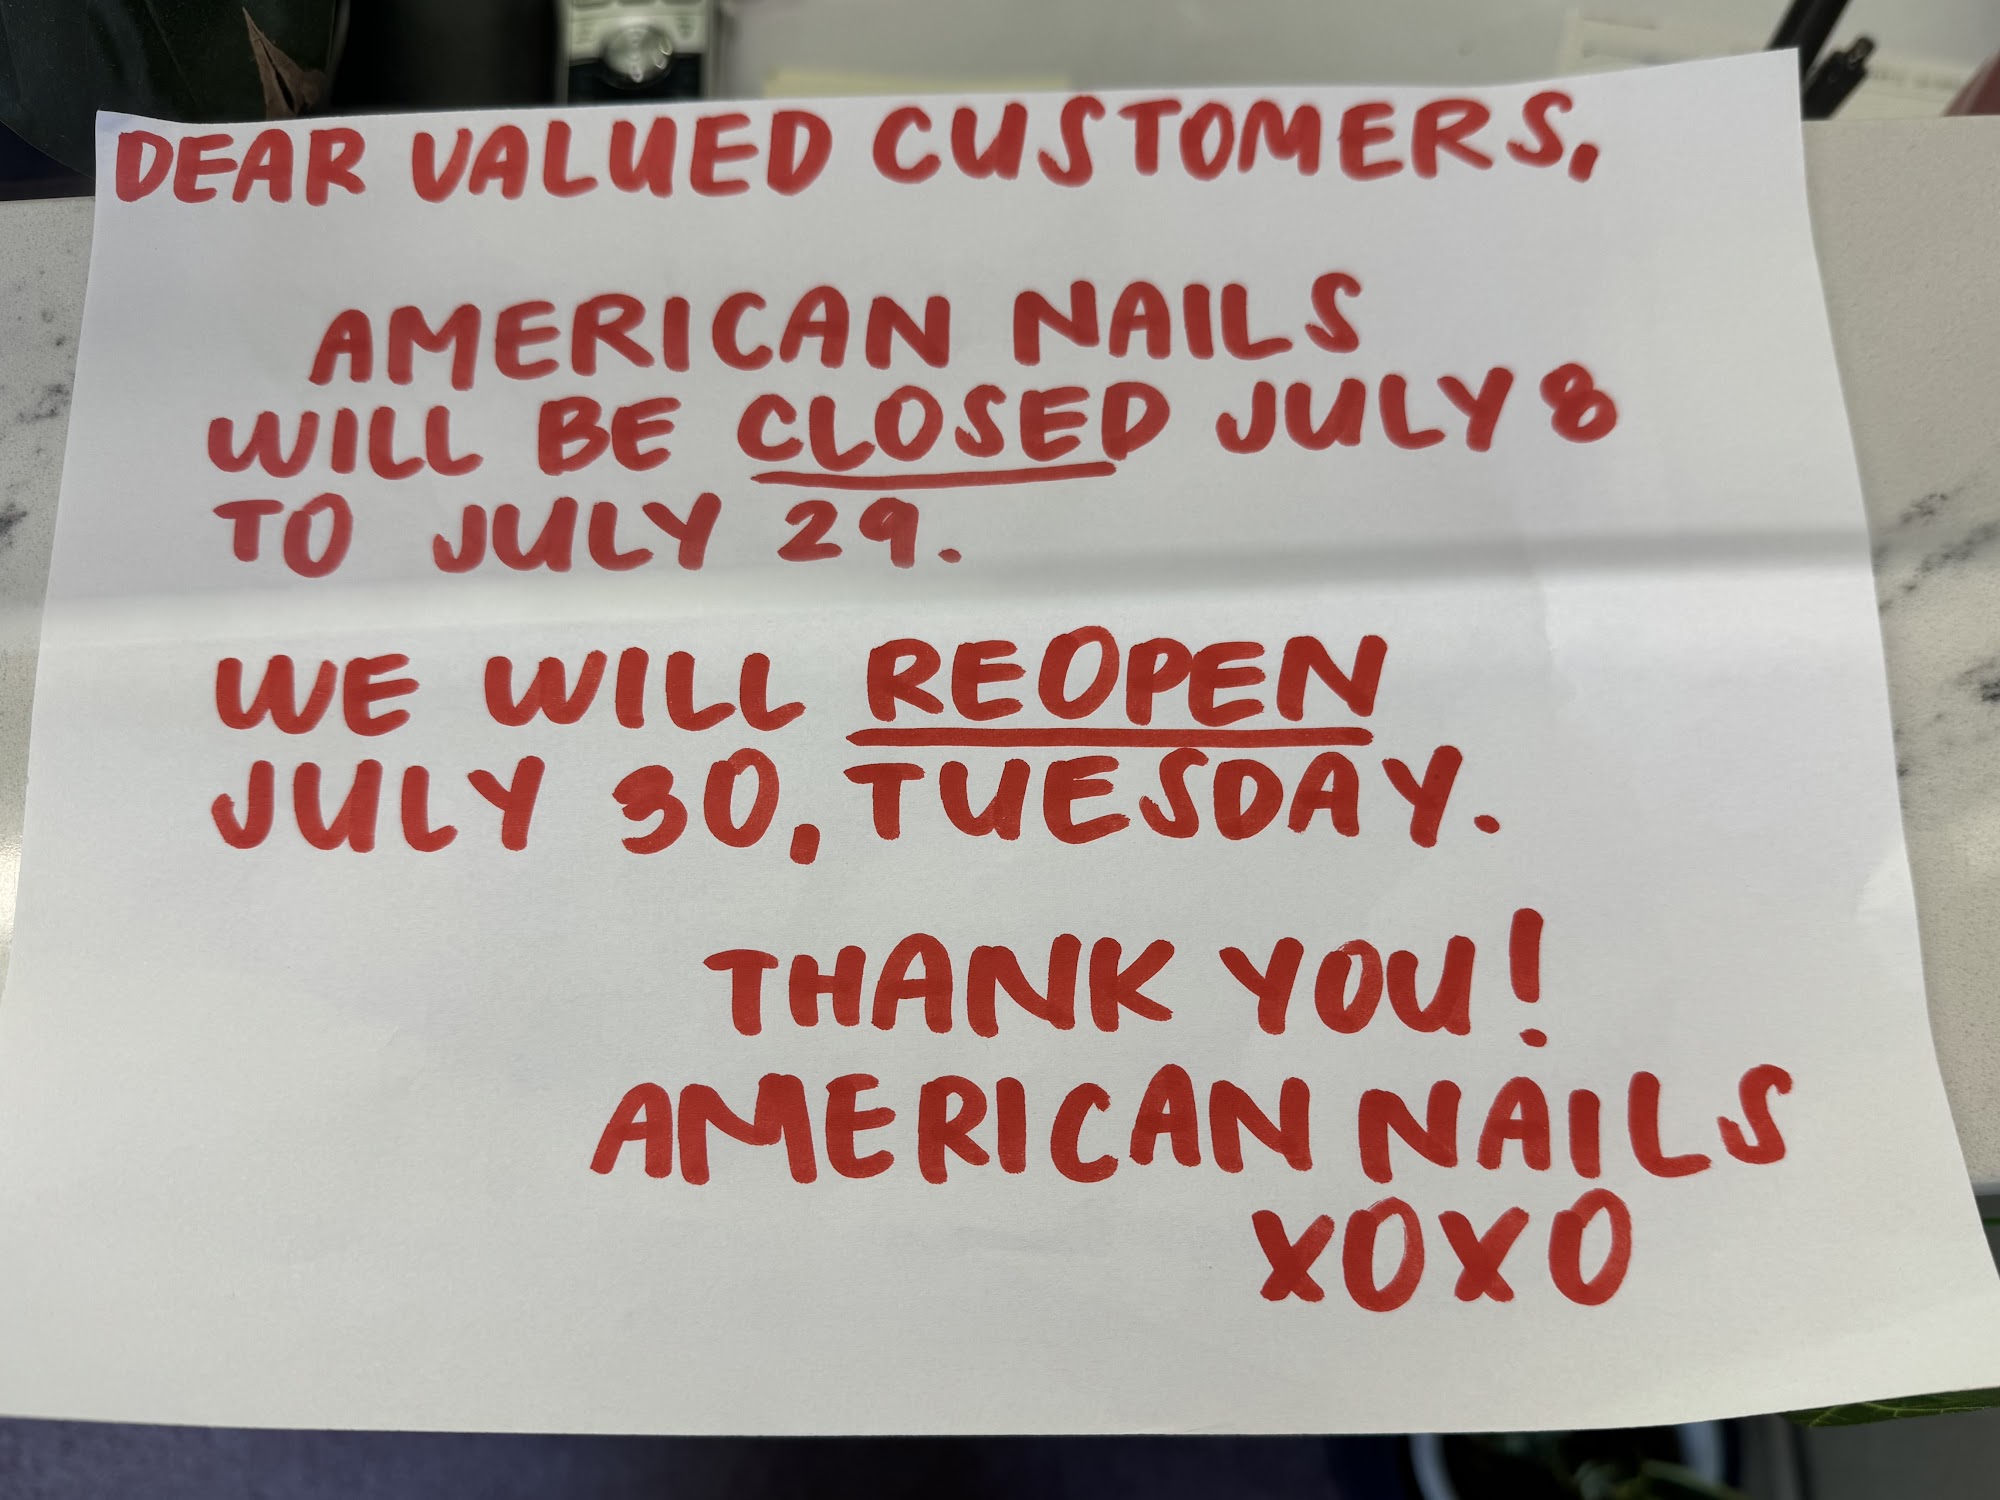 DEAR VALUED CUSTOMERS,
AMERICAN NAILS
WILL BE CLOSED JULY 8
TO JULY 29.
WE WILL REOPEN
JULY 30, TUESDAY.
THANK YOU!
AMERICAN NAILS
XOXO